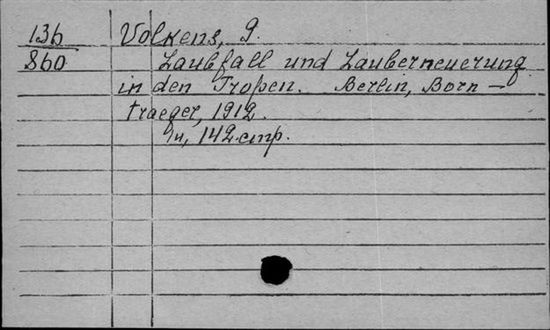 136 Volkens, G.
860 Laubfall und Lauberneuerung
in den Tropen. Berlin, Born-
traeger, 1912.
142 стр.